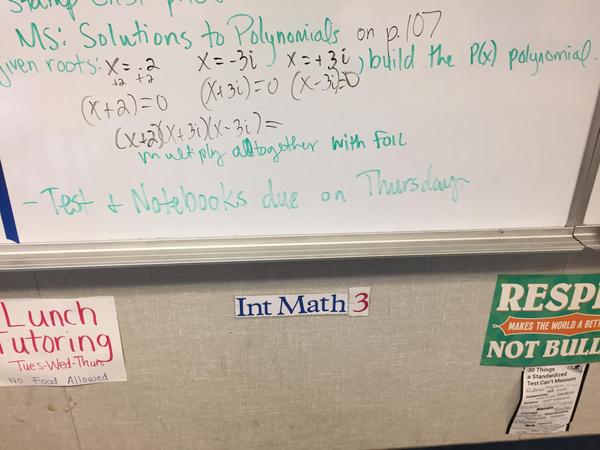 MS: Solutions to Polynomials on p.107
given roots: x = -2 x = -3i, x = +3i, build the P(x) polynomial.
+2 +2
(x+2)=0 (x+3i)=0 (x-3i)=0
(x+2)(x+3i)(x-3i)=
multiply altogether with FOIL
- Test + Notebooks due on Thursday
Int Math 3
Lunch
Tutoring
Tues-Wed-Thurs
No Food Allowed
RESPE
MAKES THE WORLD A BETT
NOT BULL
30 Things
a Standardized
Test Can't Measure